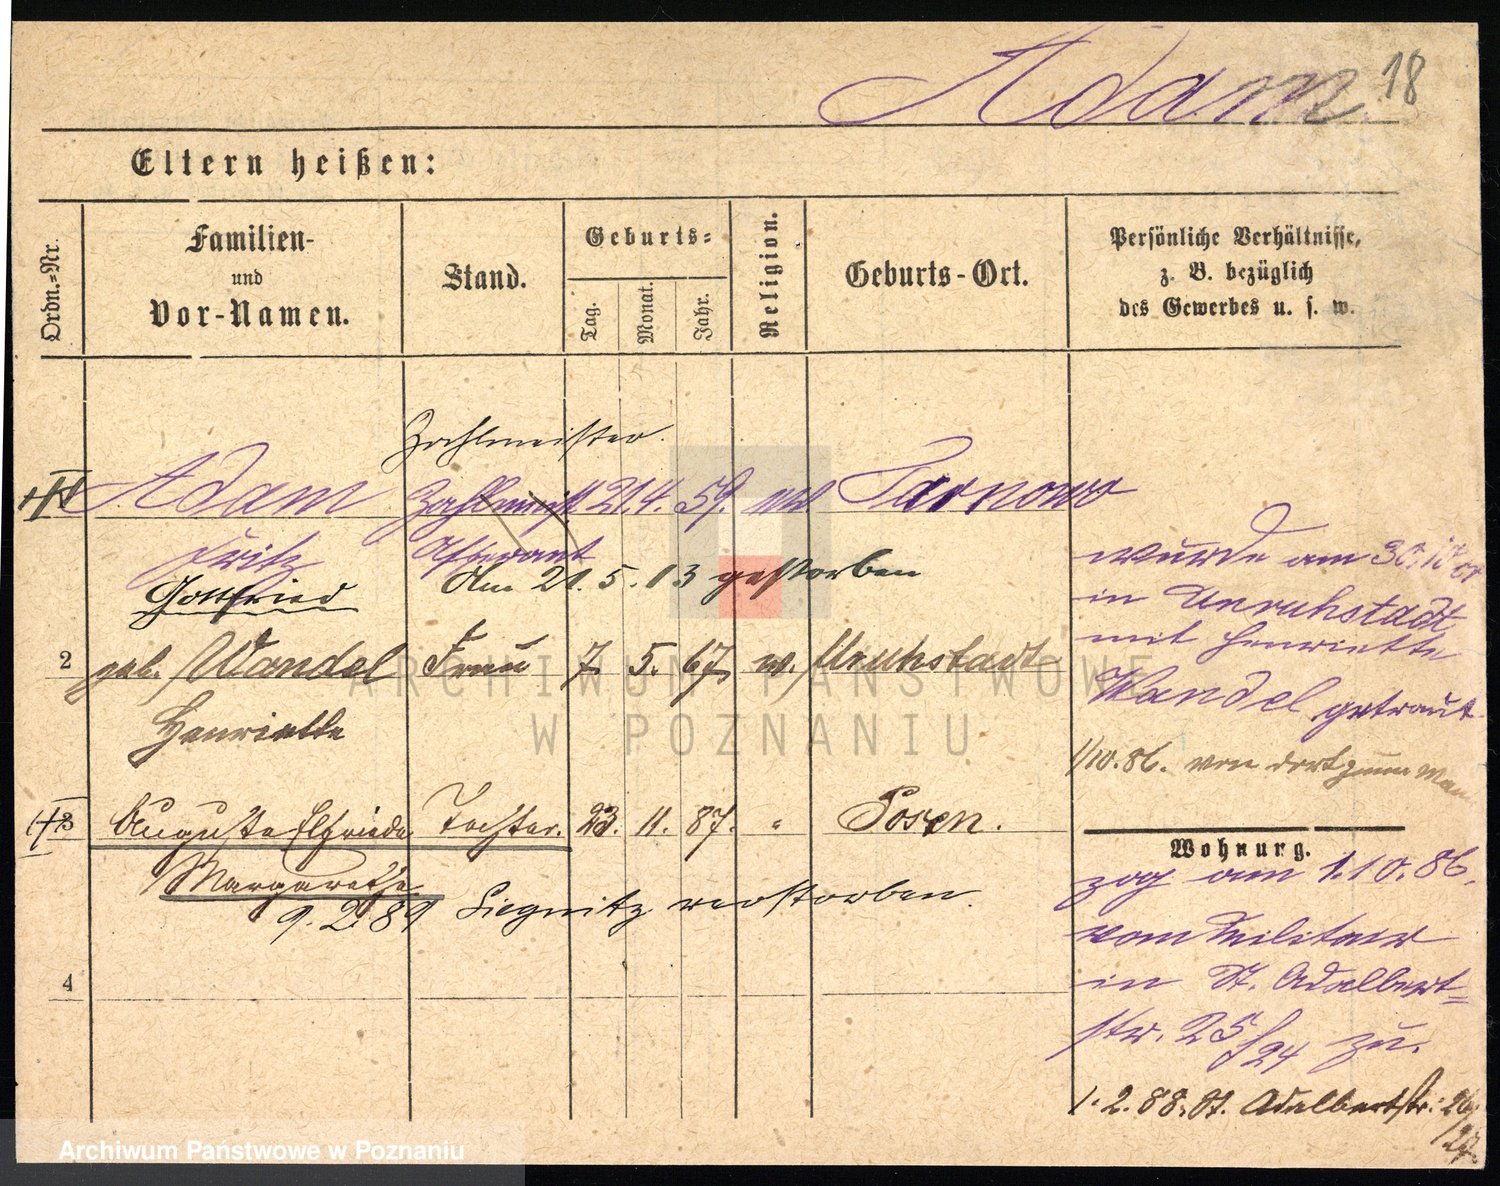 Adam 18
Eltern heißen:
Ordn.=Nr.
Familien-
und
Vor-Namen.
Stand.
Geburts=
Tag.
Monat.
Jahr.
Religion.
Geburts-Ort.
Persönliche Verhältnisse,
z. B. bezüglich
des Gewerbes u. s. w.
Zahlmeister.
Adam Zahlmeist 21. 4. 59. Tarnowo
Fritz Aspirant
Gottfried Am 21. 5. 13 gestorben
2 geb. Wandel Frau 7. 5. 67. w. Unruhstadt
Henriette
3 Auguste Elfriede Tochter. 23. 11. 87. " Posen.
Margarethe
9. 2. 89 Liegnitz verstorben.
4
wurde am 30.
in Unruhstadt
mit Henriette
Wandel getraut
1/10. 86. von dort
Wohnung.
zog am 1. 10. 86.
vom Militair
in St. Adalbert=
str. 25/24 zu.
1. 2. 88. St. Adalbertstr. 26/
27.
ARCHIWUM PAŃSTWOWE
W POZNANIU
Archiwum Państwowe w Poznaniu